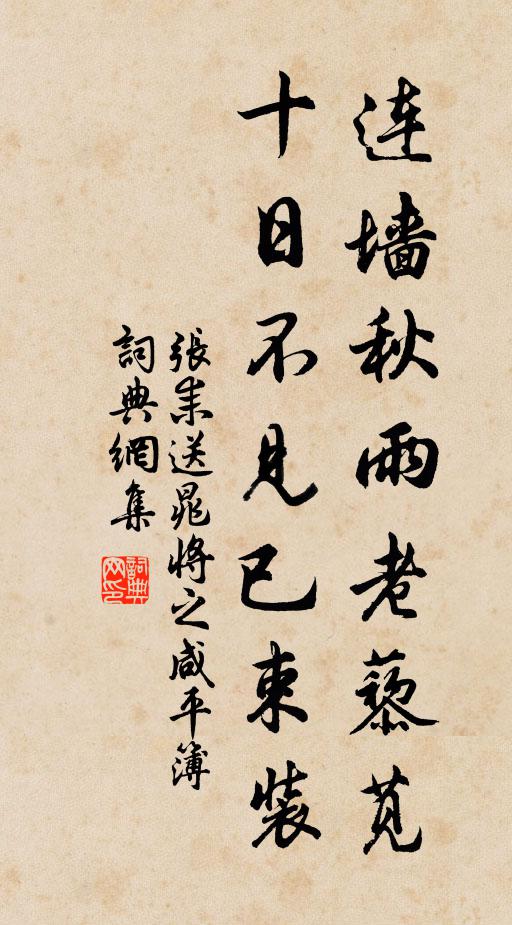 连墙秋雨老藜苋
十日不见已束装
張耒送晁將之咸平簿
詞典網集
詞典网印